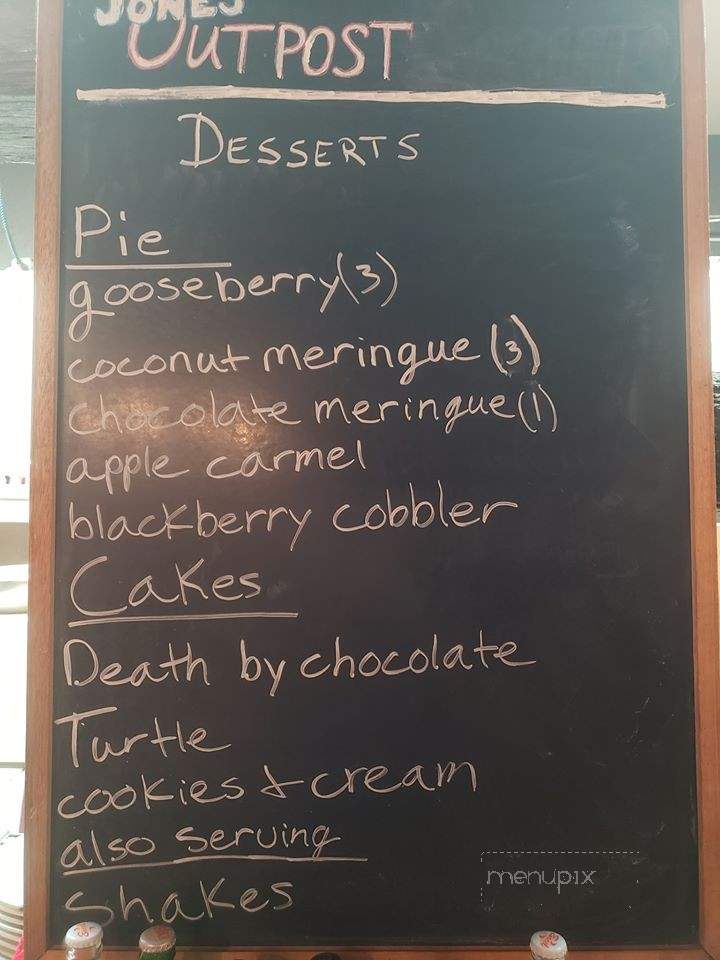 JONES
OUTPOST
DESSERTS
Pie
gooseberry(3)
coconut meringue (3)
chocolate meringue(1)
apple carmel
blackberry cobbler
Cakes
Death by chocolate
Turtle
cookies & cream
also serving
Shakes
menupix